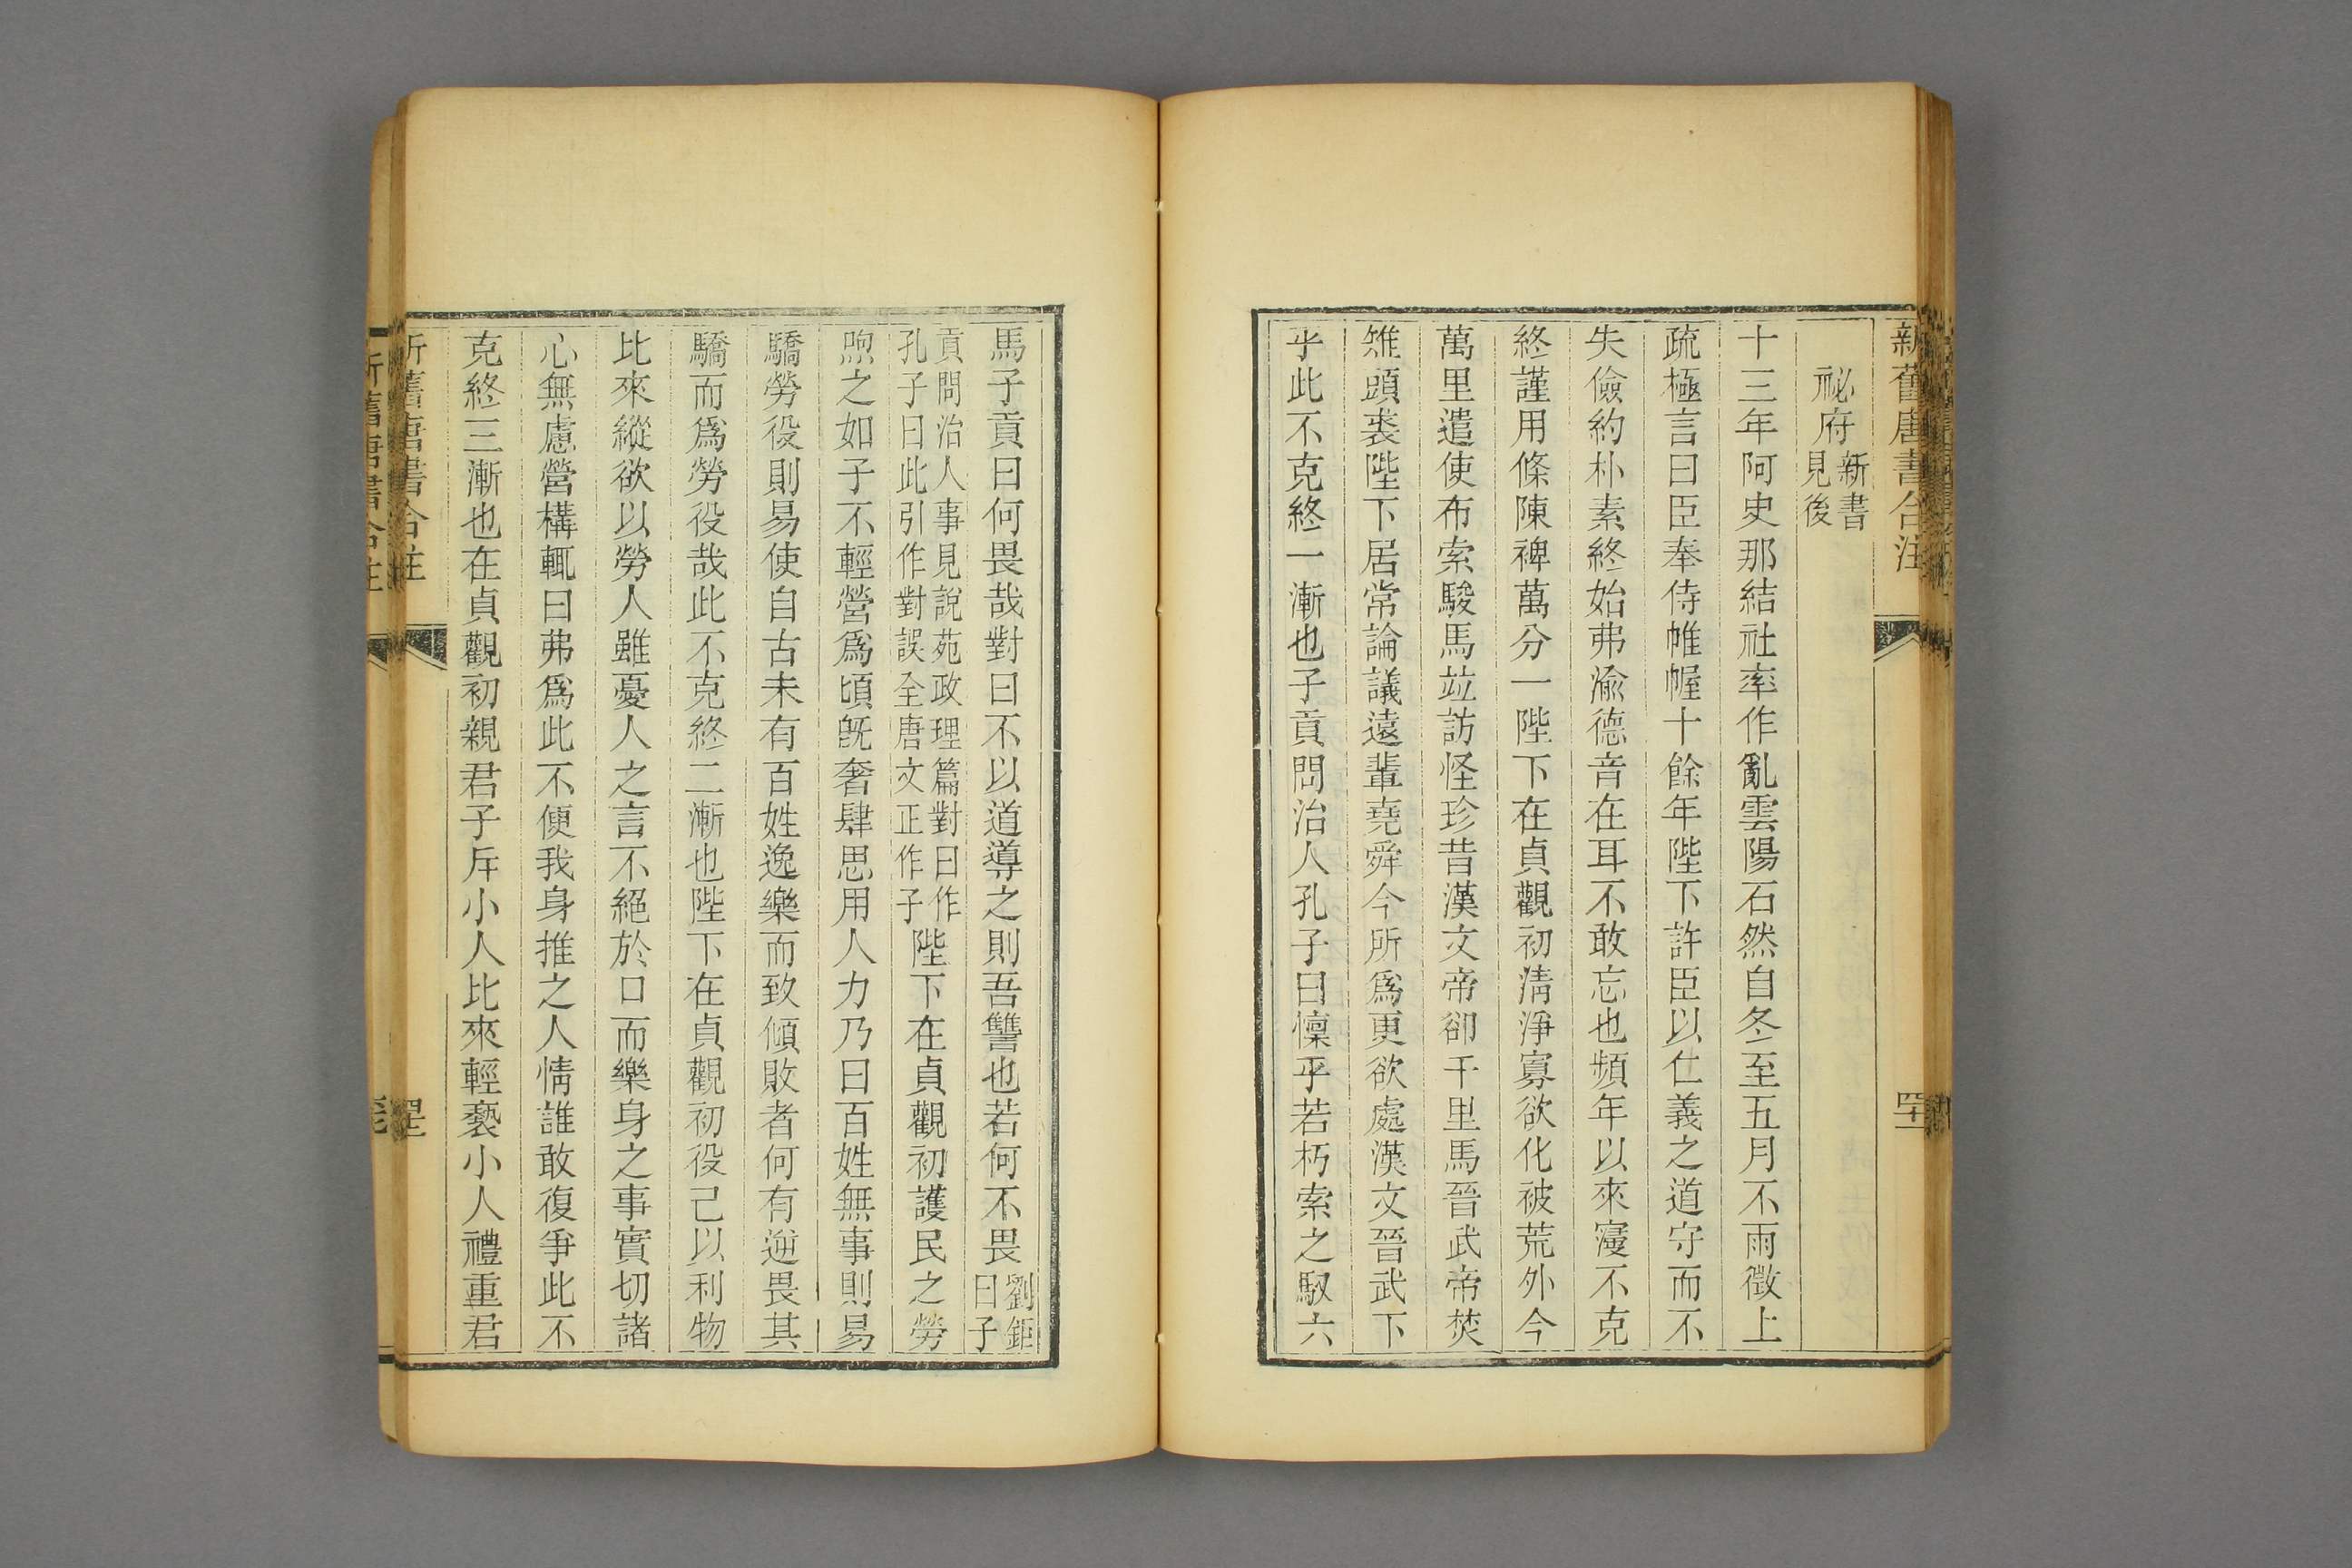 新舊唐書合注
四十二
祕府新書見後
十三年阿史那結社率作亂雲陽石然自冬至五月不雨徵上
疏極言曰臣奉侍帷幄十餘年陛下許臣以仁義之道守而不
失儉約朴素終始弗渝德音在耳不敢忘也頻年以來寖不克
終謹用條陳裨萬分一陛下在貞觀初清淨寡欲化被荒外今
萬里遣使布索駿馬竝訪怪珍昔漢文帝卻千里馬晉武帝焚
雉頭裘陛下居常論議遠輩堯舜今所爲更欲處漢文晉武下
乎此不克終一漸也子貢問治人孔子曰懍乎若朽索之馭六
馬子貢曰何畏哉對曰不以道導之則吾讐也若何不畏劉鉅曰子
貢問治人事見說苑政理篇對曰作孔子曰此引作對誤全唐文正作子陛下在貞觀初護民之勞
煦之如子不輕營爲頃旣奢肆思用人力乃曰百姓無事則易
驕勞役則易使自古未有百姓逸樂而致傾敗者何有逆畏其
驕而爲勞役哉此不克終二漸也陛下在貞觀初役己以利物
比來縱欲以勞人雖憂人之言不絕於口而樂身之事實切諸
心無慮營構輒曰弗爲此不便我身推之人情誰敢復爭此不
克終三漸也在貞觀初親君子斥小人比來輕褻小人禮重君
舊唐書合注